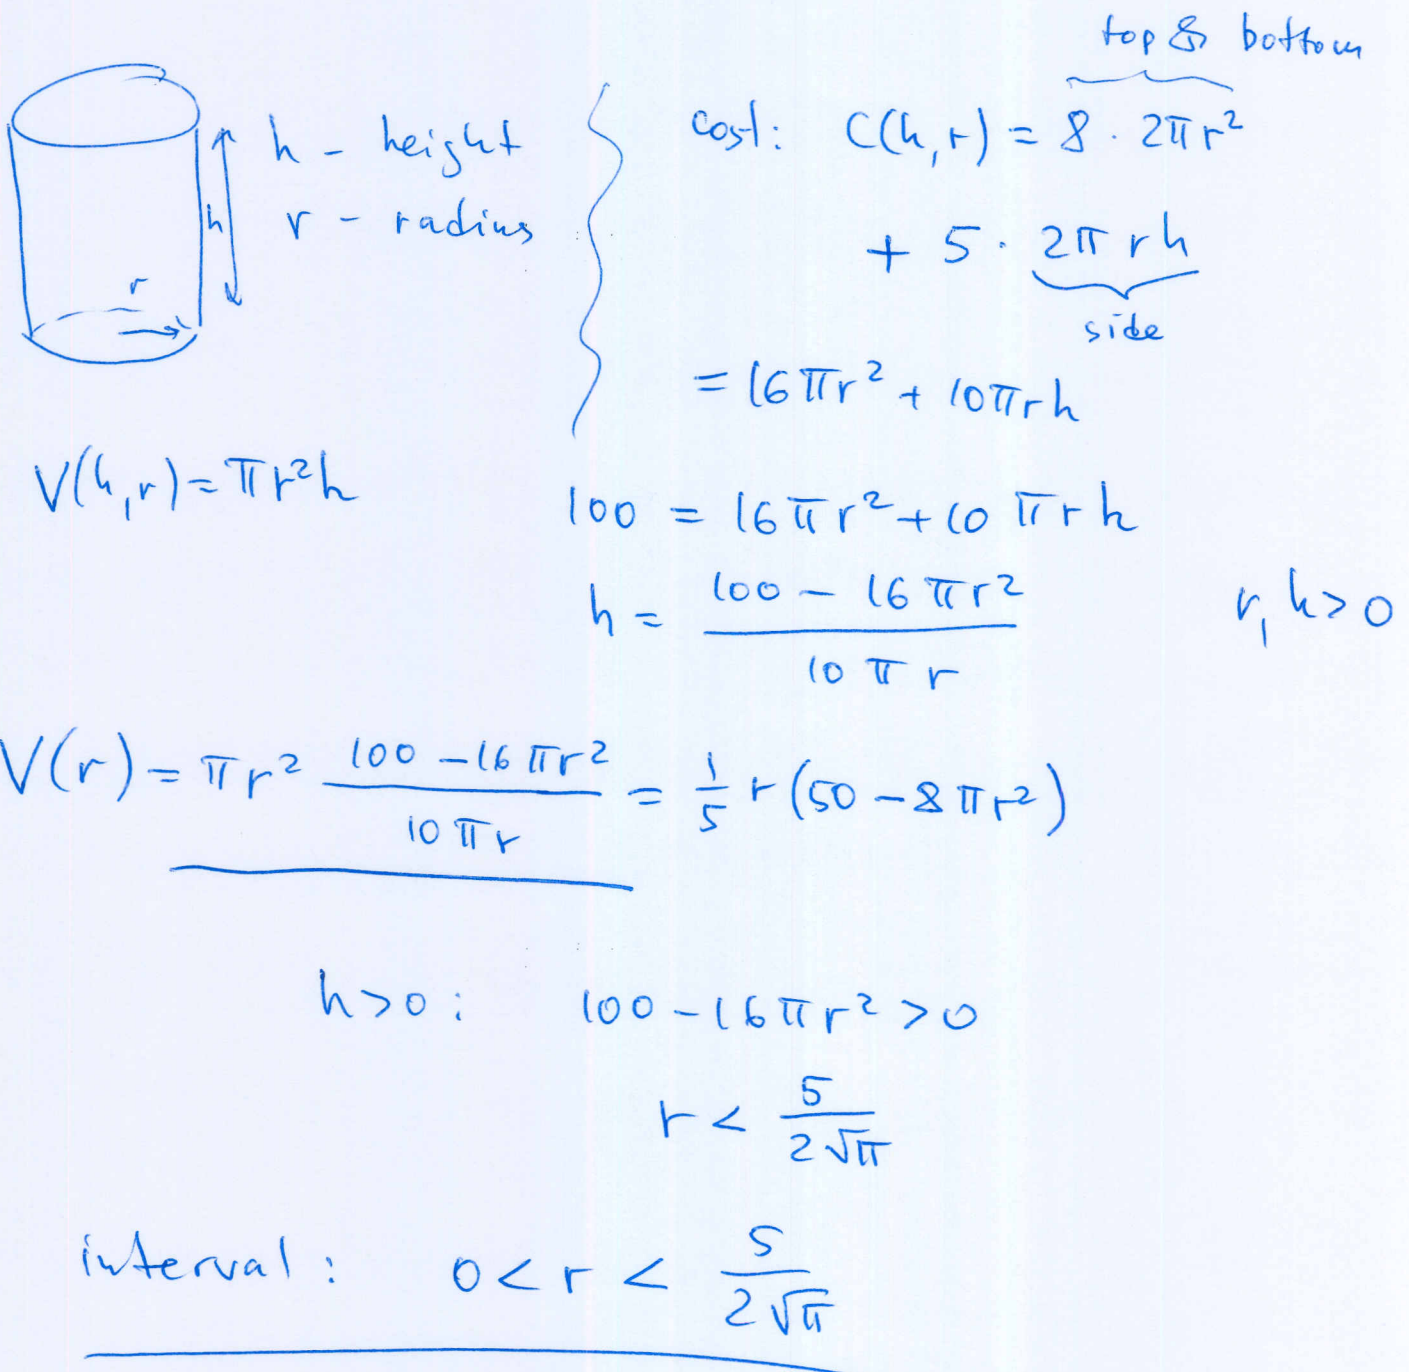 top & bottom
h - height
r - radius
h
r
cost: C(h,r) = 8 · 2πr²
+ 5 · 2πrh
side
= 16πr² + 10πrh
V(h,r) = πr²h
100 = 16πr² + 10πrh
h = (100 - 16πr²)/(10πr)
r, h > 0
V(r) = πr² (100 - 16πr²)/(10πr) = 1/5 r(50 - 8πr²)
h > 0: 100 - 16πr² > 0
r < 5/(2√π)
interval: 0 < r < 5/(2√π)